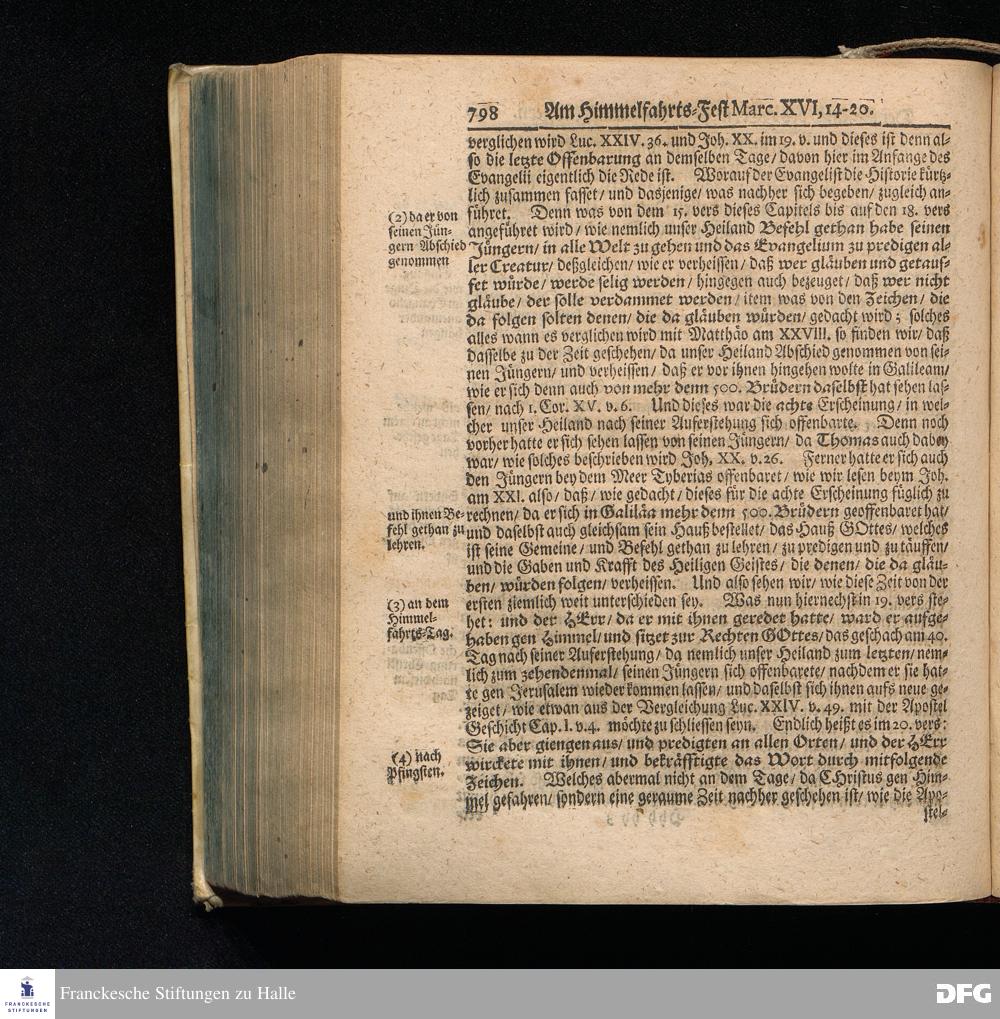 798 Am Himmelfahrts-Fest Marc. XVI, 14-20.
verglichen wird Luc. XXIV. 36. und Joh. XX. im 19. v. und dieses ist denn al-
so die letzte Offenbarung an demselben Tage/ davon hier im Anfange des
Evangelii eigentlich die Rede ist. Worauf der Evangelist die Historie kürtz-
lich zusammen fasset/ und dasjenige/ was nachher sich begeben/ zugleich an-
führet. Denn was von dem 15. vers dieses Capitels bis auf den 18. vers
angeführet wird/ wie nemlich unser Heiland Befehl gethan habe seinen
Jüngern/ in alle Welt zu gehen und das Evangelium zu predigen al-
ler Creatur/ deßgleichen/ wie er verheissen/ daß wer gläuben und getauf-
fet würde/ werde selig werden/ hingegen auch bezeuget/ daß wer nicht
gläube/ der solle verdammet werden/ item was von den Zeichen/ die
da folgen solten denen/ die da gläuben würden/ gedacht wird; solches
alles wann es verglichen wird mit Matthäo am XXVIII. so finden wir/ daß
dasselbe zu der Zeit geschehen/ da unser Heiland Abschied genommen von sei-
nen Jüngern/ und verheissen/ daß er vor ihnen hingehen wolte in Galileam/
wie er sich denn auch von mehr denn 500. Brüdern daselbst hat sehen las-
sen/ nach 1. Cor. XV. v. 6. Und dieses war die achte Erscheinung/ in wel-
cher unser Heiland nach seiner Auferstehung sich offenbarte. Denn noch
vorher hatte er sich sehen lassen von seinen Jüngern/ da Thomas auch dabey
war/ wie solches beschrieben wird Joh. XX. v. 26. Ferner hatte er sich auch
den Jüngern bey dem Meer Tyberias offenbaret/ wie wir lesen beym Joh.
am XXI. also/ daß/ wie gedacht/ dieses für die achte Erscheinung füglich zu
rechnen/ da er sich in Galiläa mehr denn 500. Brüdern geoffenbaret hat/
und daselbst auch gleichsam sein Hauß bestellet/ das Hauß GOttes/ welches
ist seine Gemeine/ und Befehl gethan zu lehren/ zu predigen und zu täuffen/
und die Gaben und Krafft des Heiligen Geistes/ die denen/ die da gläu-
ben/ würden folgen/ verheissen. Und also sehen wir/ wie diese Zeit von der
ersten ziemlich weit unterschieden sey. Was nun hiernechst in 19. vers ste-
het: und der HErr/ da er mit ihnen geredet hatte/ ward er aufge-
haben gen Himmel/ und sitzet zur Rechten GOttes/ das geschach am 40.
Tag nach seiner Auferstehung/ da nemlich unser Heiland zum letzten/ nem-
lich zum zehendenmal/ seinen Jüngern sich offenbarete/ nachdem er sie hat-
te gen Jerusalem wieder kommen lassen/ und daselbst sich ihnen aufs neue ge-
zeiget/ wie etwan aus der Vergleichung Luc. XXIV. v. 49. mit der Apostel
Geschicht Cap. I. v. 4. möchte zu schliessen seyn. Endlich heißt es im 20. vers:
Sie aber giengen aus/ und predigten an allen Orten/ und der HErr
wirckete mit ihnen/ und bekräfftigte das Wort durch mitfolgende
Zeichen. Welches abermal nicht an dem Tage/ da CHristus gen Him-
mel gefahren/ sondern eine geraume Zeit nachher geschehen ist/ wie die Apo-
stel-
(2) da er von
seinen Jün-
gern Abschied
genommen
und ihnen Be-
fehl gethan zu
lehren.
(3) an dem
Himmel-
fahrts-Tag.
(4) nach
Pfingsten.
FRANCKESCHE
STIFTUNGEN
Franckesche Stiftungen zu Halle
DFG